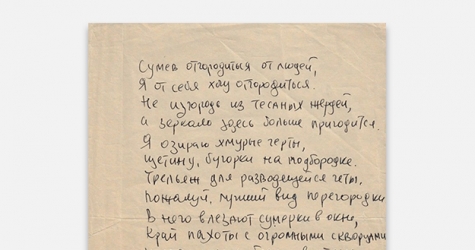 Сумев отгородиться от людей,
я от себя хочу отгородиться.
Не изгородь из тесаных жердей,
а зеркало здесь больше пригодится.
Я озираю хмурые черты,
щетину, бугорки на подбородке.
Трельяж для разводящейся четы,
пожалуй, лучший вид перегородки.
В него влезают сумерки в окне,
край пахоты с огромными скворцами